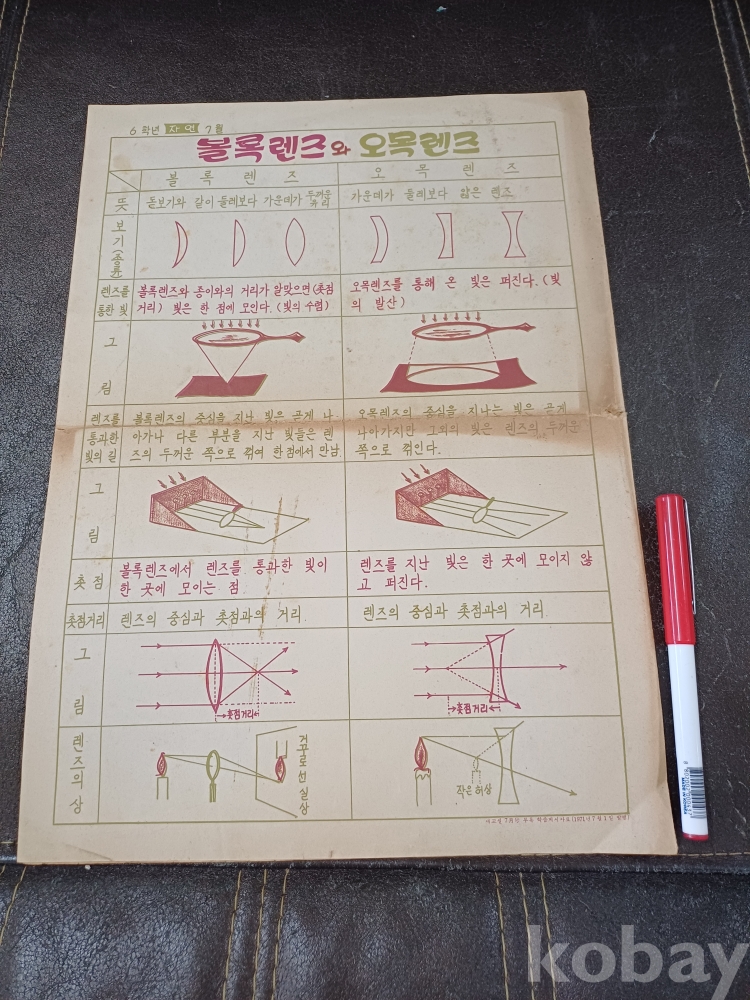 6학년 자연 7월
볼록렌즈와 오목렌즈
볼록렌즈 오목렌즈
뜻 돋보기와 같이 둘레보다 가운데가 두꺼운 유리 가운데가 둘레보다 얇은 렌즈
보기(종류)
렌즈를 통한 빛
볼록렌즈와 종이와의 거리가 알맞으면(촛점
거리) 빛은 한 점에 모인다. (빛의 수렴)
오목렌즈를 통해 온 빛은 퍼진다. (빛
의 발산)
그림
렌즈를 통과한 빛의 길
볼록렌즈의 중심을 지난 빛은 곧게 나
아가나 다른 부분을 지난 빛들은 렌
즈의 두꺼운 쪽으로 꺾여 한점에서 만남
오목렌즈의 중심을 지나는 빛은 곧게
나아가지만 그외의 빛은 렌즈의 두꺼운
쪽으로 꺾인다.
그림
촛점
볼록렌즈에서 렌즈를 통과한 빛이
한 곳에 모이는 점
렌즈를 지난 빛은 한 곳에 모이지 않
고 퍼진다.
촛점거리 렌즈의 중심과 촛점과의 거리 렌즈의 중심과 촛점과의 거리
그림
촛점거리
촛점거리
렌즈의 상
거꾸로 선 실상
작은 허상
kobay